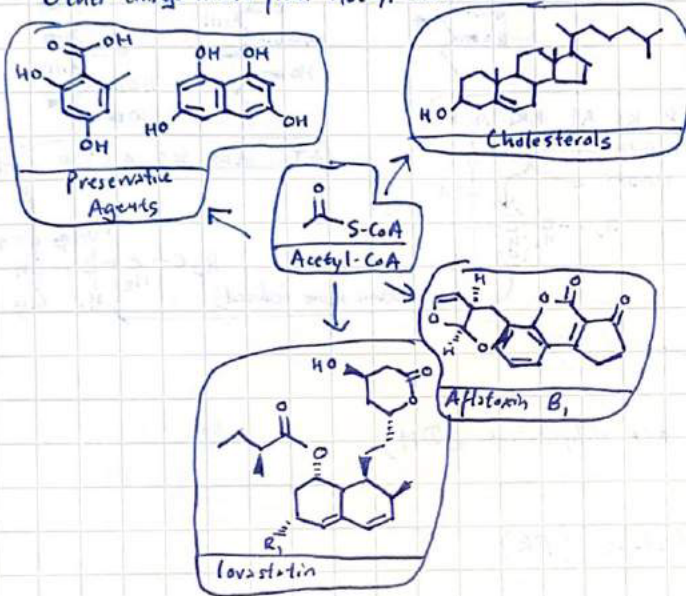 O OH
HO
OH
OH OH
HO OH
Preservative
Agents
HO
Cholesterols
O
S-CoA
Acetyl-CoA
H
O O O
O
H O
Aflatoxin B1
HO
O
O
O
O
R1
lovastatin